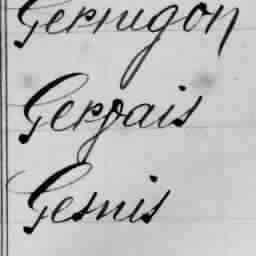 Gernigon
Gervais
Gesnis